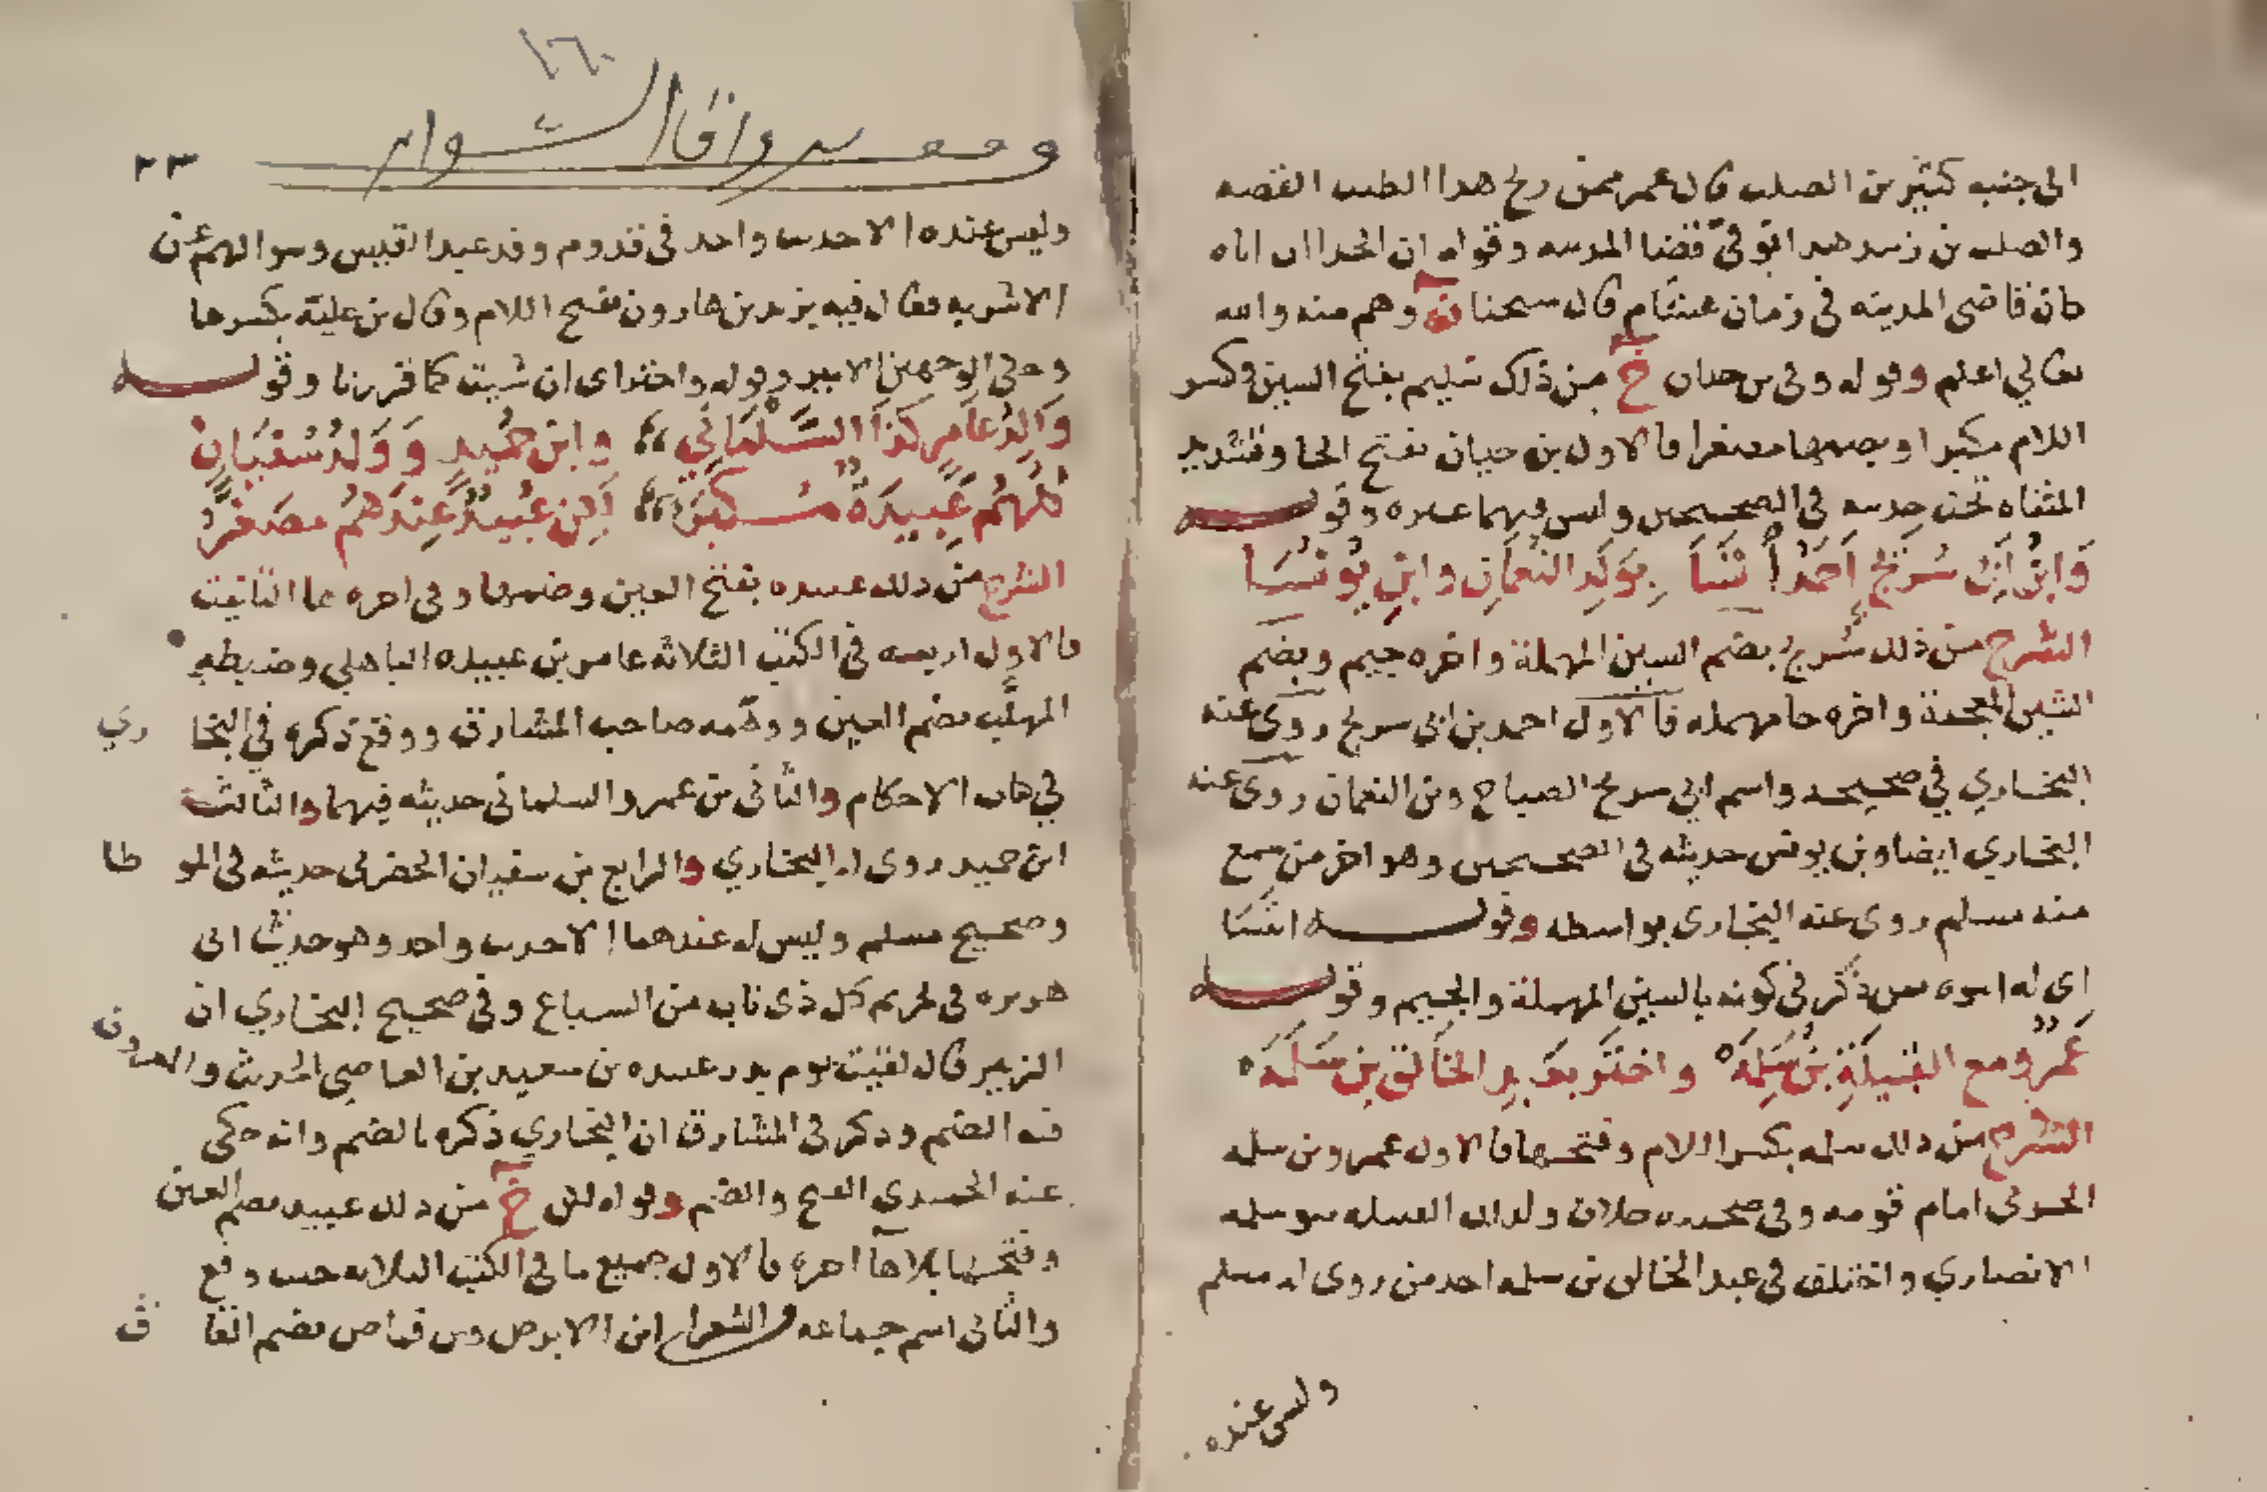 الى جنبه كثير بن الصلت قال عمر ممن ريح هذا الطيب القصه
والصلت بن زبيد هذا تو في قضا المدينه وقوله ان الحذا اباه
كان قاضي المدينه في زمان هشام قال شيخنا وهم منه والله
تعالي اعلم وقوله وفى بن حيان خ من ذلك سليم بفتح السين وكسر
اللام مكبرا وبضمها مصغرا فالاول بن حيان بفتح الحا وتشديد
المثناه تحت حديثه في الصحيحين وليس فيهما غيره وقوله
وَابنُ اَبِي سُرَيْجٍ اَحْمَدُ ائتسَا بِوَلَدِ النُعمَانِ وابنِ يُونُسَا
الشرح من ذلك سُريج بضم السين المهملة واخره جيم وبضم
الشين المعجمة واخره حا مهمله فالاول احمد بن ابي سريج روى عنه
البخاري في صحيحه واسم ابي سريج الصباح وبن النعمان روى عنه
البخاري ايضا وبن يونس حديثه في الصحيحين وهو اخر من سمع
منه مسلم روى عنه البخاري بواسطه وقوله ائتسا
اي له اسوه بمن ذكر في كونه بالسين المهملة والجيم وقوله
عَمرٌو مع القَبيلَةِ بنُ سَلِمَه واختَر بعَبدِ الخَالقِ بنِ سَلَمَه
الشرح من ذلك سلمه بكسر اللام وفتحها فالاول عمرو بن سلمه
الجرمي امام قومه وفي صحبته خلاف ولذلك القبيله بنو سلمه
الانصاري واختلف في عبد الخالق بن سلمه احد من روى له مسلم
وليس عنده
١٦٠
٢٣
وليس عنده الا حديث واحد في قدوم وفد عبد القيس وسوالهم عن
الاشربه فقال فيه يزيد بن هارون بفتح اللام وقال بن علية بكسرها
وقوله واختر اى ان شيت كما قررنا وقوله
وَالِدُ عَامِرٍ كَذَا السَّلْمَانِي وابن حُمَيدٍ وَوَلَدُ سُفيَانِ
كُلُّهُم عَبِيدَةٌ مُكَبَّرُ لكِن عُبَيدٌ عِندَهُم مُصَغَّرُ
الشرح من ذلك عبيده بفتح العين وضمها وفي اخره ها التانيث
فالاول اربعه في الكتب الثلاثه عامر بن عبيده الباهلي وضبطه
المهلَّب بضم العين ووهّمه صاحب المشارق ووقع ذكره في البخا ري
في كتاب الاحكام والثاني بن عمرو السلماني حديثه فيهما والثالث
ابن حميد روى له البخاري والرابع بن سفيان الحضرمي حديثه في المو طا
وصحيح مسلم وليس له عندهما الا حديث واحد وهو حديث ابي
هريره في تحريم كل ذي ناب من السباع وفي صحيح البخاري ان
الزبير قال لقيت يوم بدر عبيده بن سعيد بن العاصي الحديث والمعروف
فيه الضم وذكر في المشارق ان البخاري ذكره بالضم وانه حكى
عنه الحميدي الفتح والضم وقوله لكن خ من ذلك عبيد بضم العين
وفتحها بلا ها اخره فالاول جميع ما في الكتب الثلاثه حيث وقع
والثاني اسم جماعه والشعرا ابن الابرص وبن قماص بضم القا ف